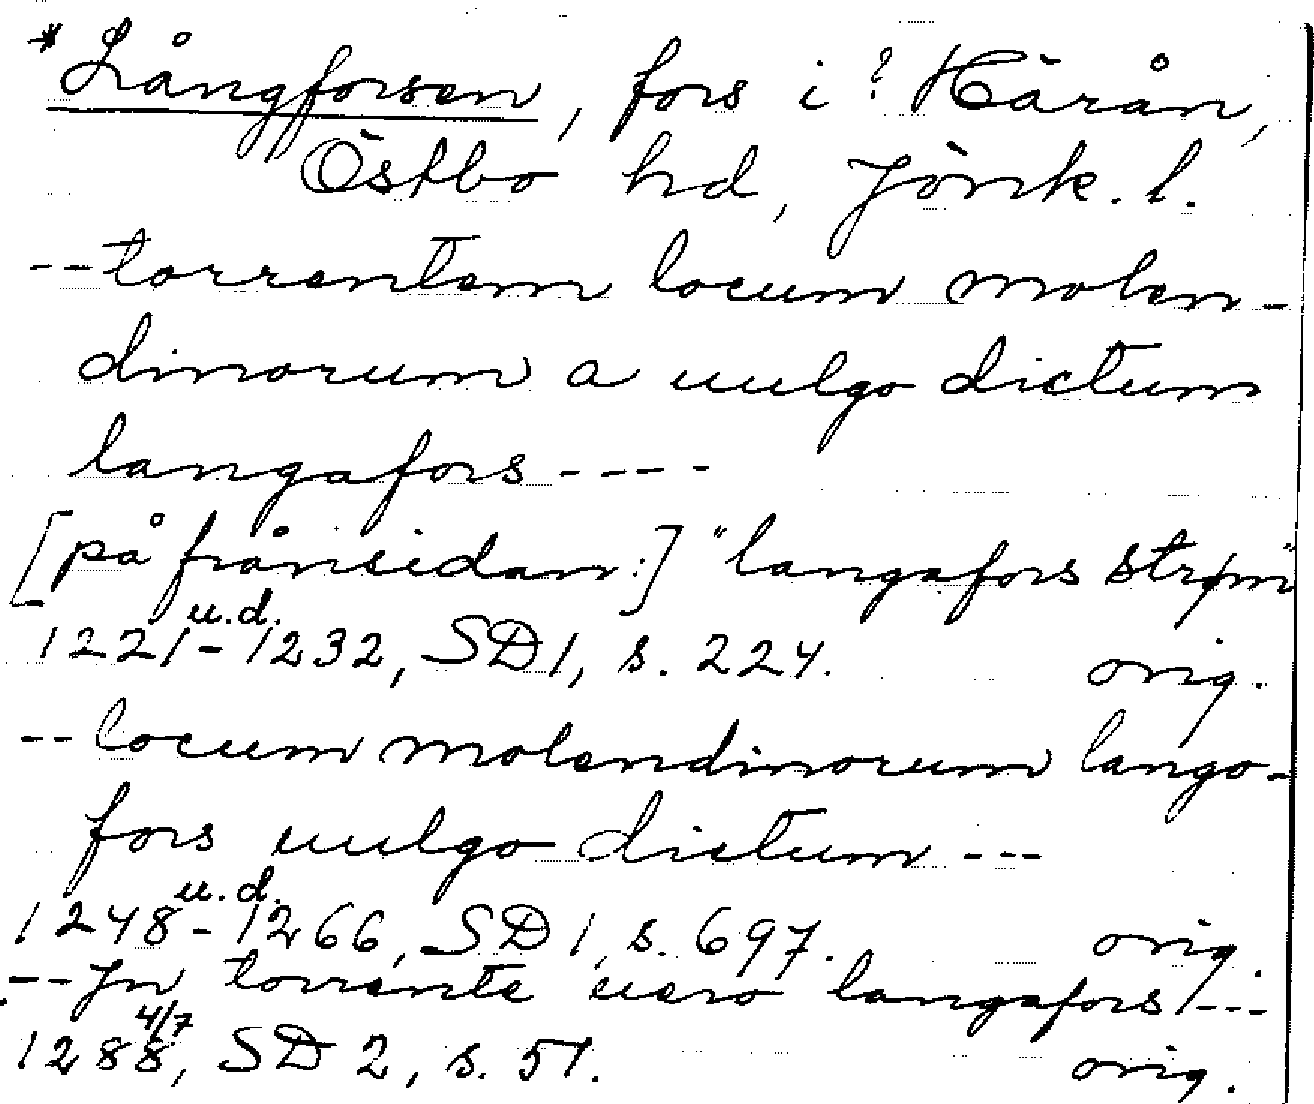 *Långforsen, fors i? Härån,
Östbo hd, Jönk. l.
--torrentem locum molen-
dinorum a uulgo dictum
langafors----
[på frånsidan:] "langafors strøm"
u.d.
1221-1232, SD 1, s. 224. orig.
--locum molendinorum lango-
fors uulgo dictum ---
u.d.
1248-1266, SD 1, s. 697. orig.
--Jn torrente uero langafors/---
4/7
1288, SD 2, s. 51. orig.